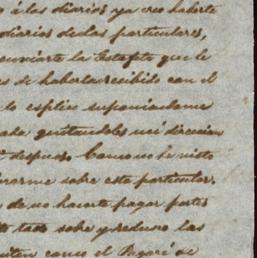 á los diarios ya creo haberte
diarios de las particulares,
anunciarte la Estafeta que le
es de haberla recibido con el
lo esplico suponiendome
ada, gustandoles mi direccion
despues. Como no he visto
inarme sobre este particular.
o de no hacerte pagar portes
to todo sobre y reduzco las
como el Pagaré de